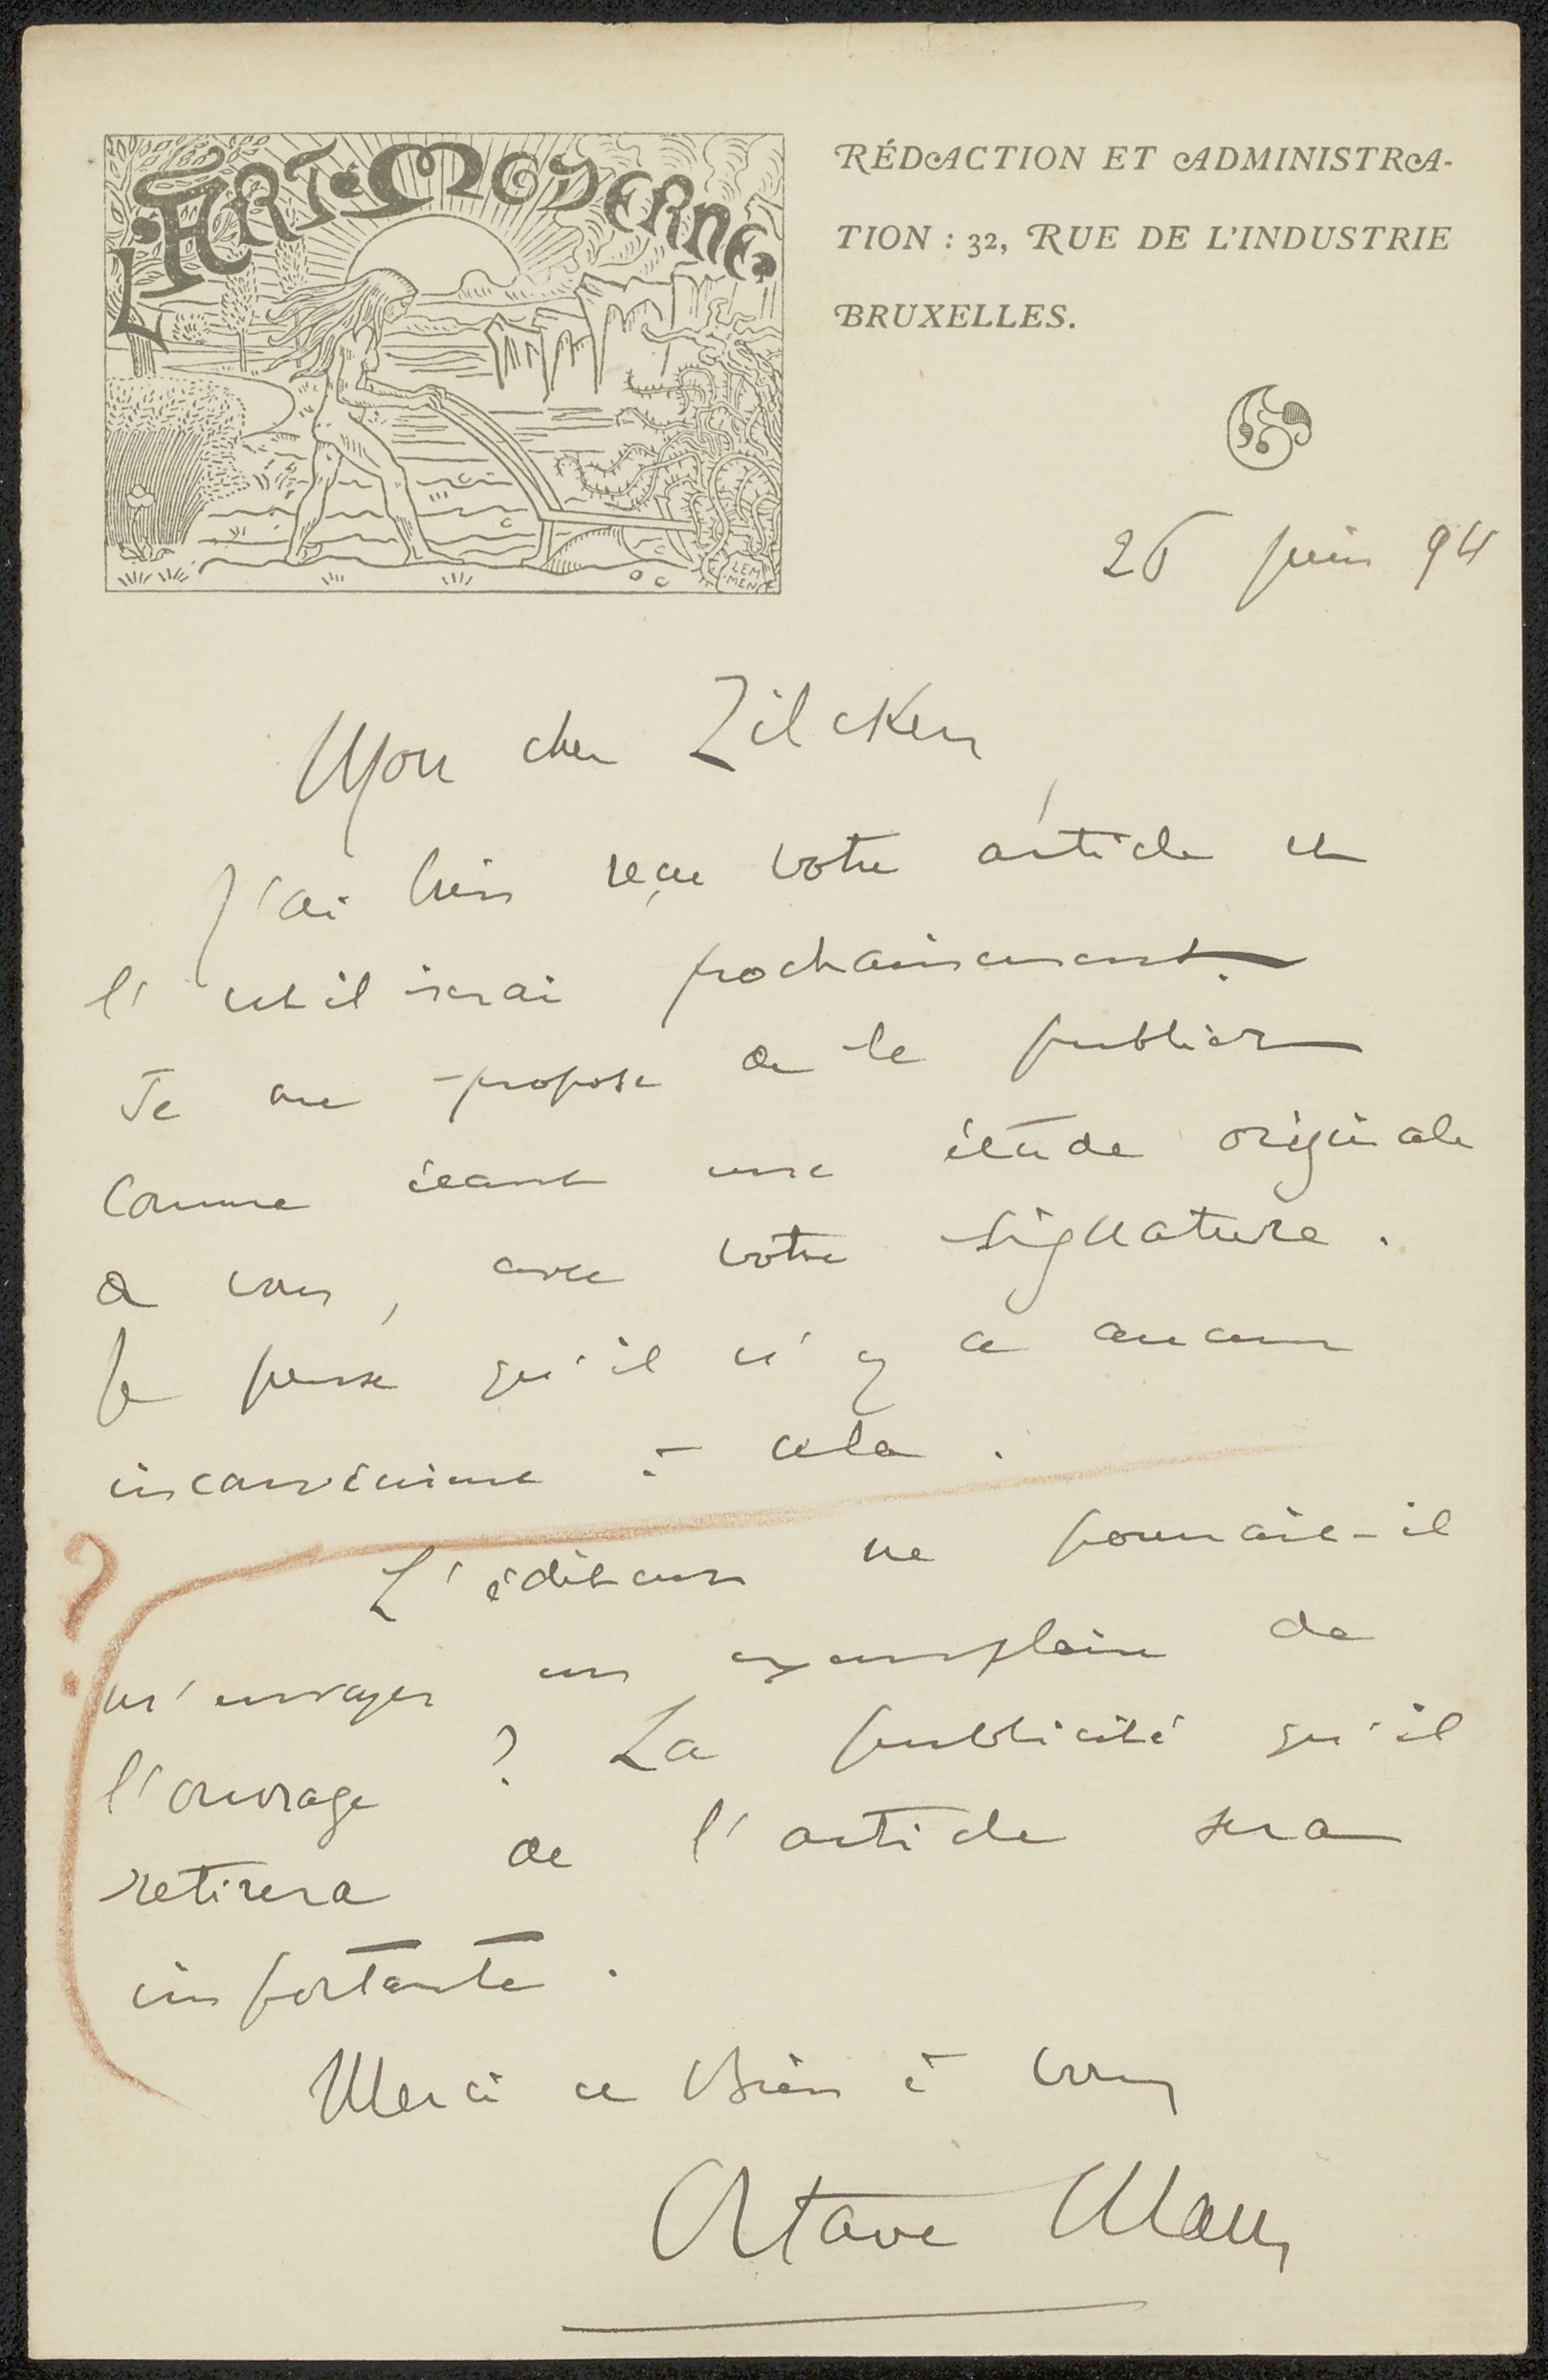 L'ART MODERNE
RÉDACTION ET ADMINISTRA-
TION : 32, RUE DE L'INDUSTRIE
BRUXELLES.
LEM
MEN
26 juin 94
Mon cher Zilcken,
J'ai bien reçu votre article et
l'utiliserai prochainement.
Je me propose de le publier
comme étant une étude originale
de vous, avec votre signature.
Je pense qu'il n'y a aucun
inconvénient à cela.
?
L'éditeur ne pourrait-il
m'envoyer un exemplaire de
l'ouvrage ? La publicité qu'il
retirera de l'article sera
importante.
Merci et bien à vous
Octave Maus